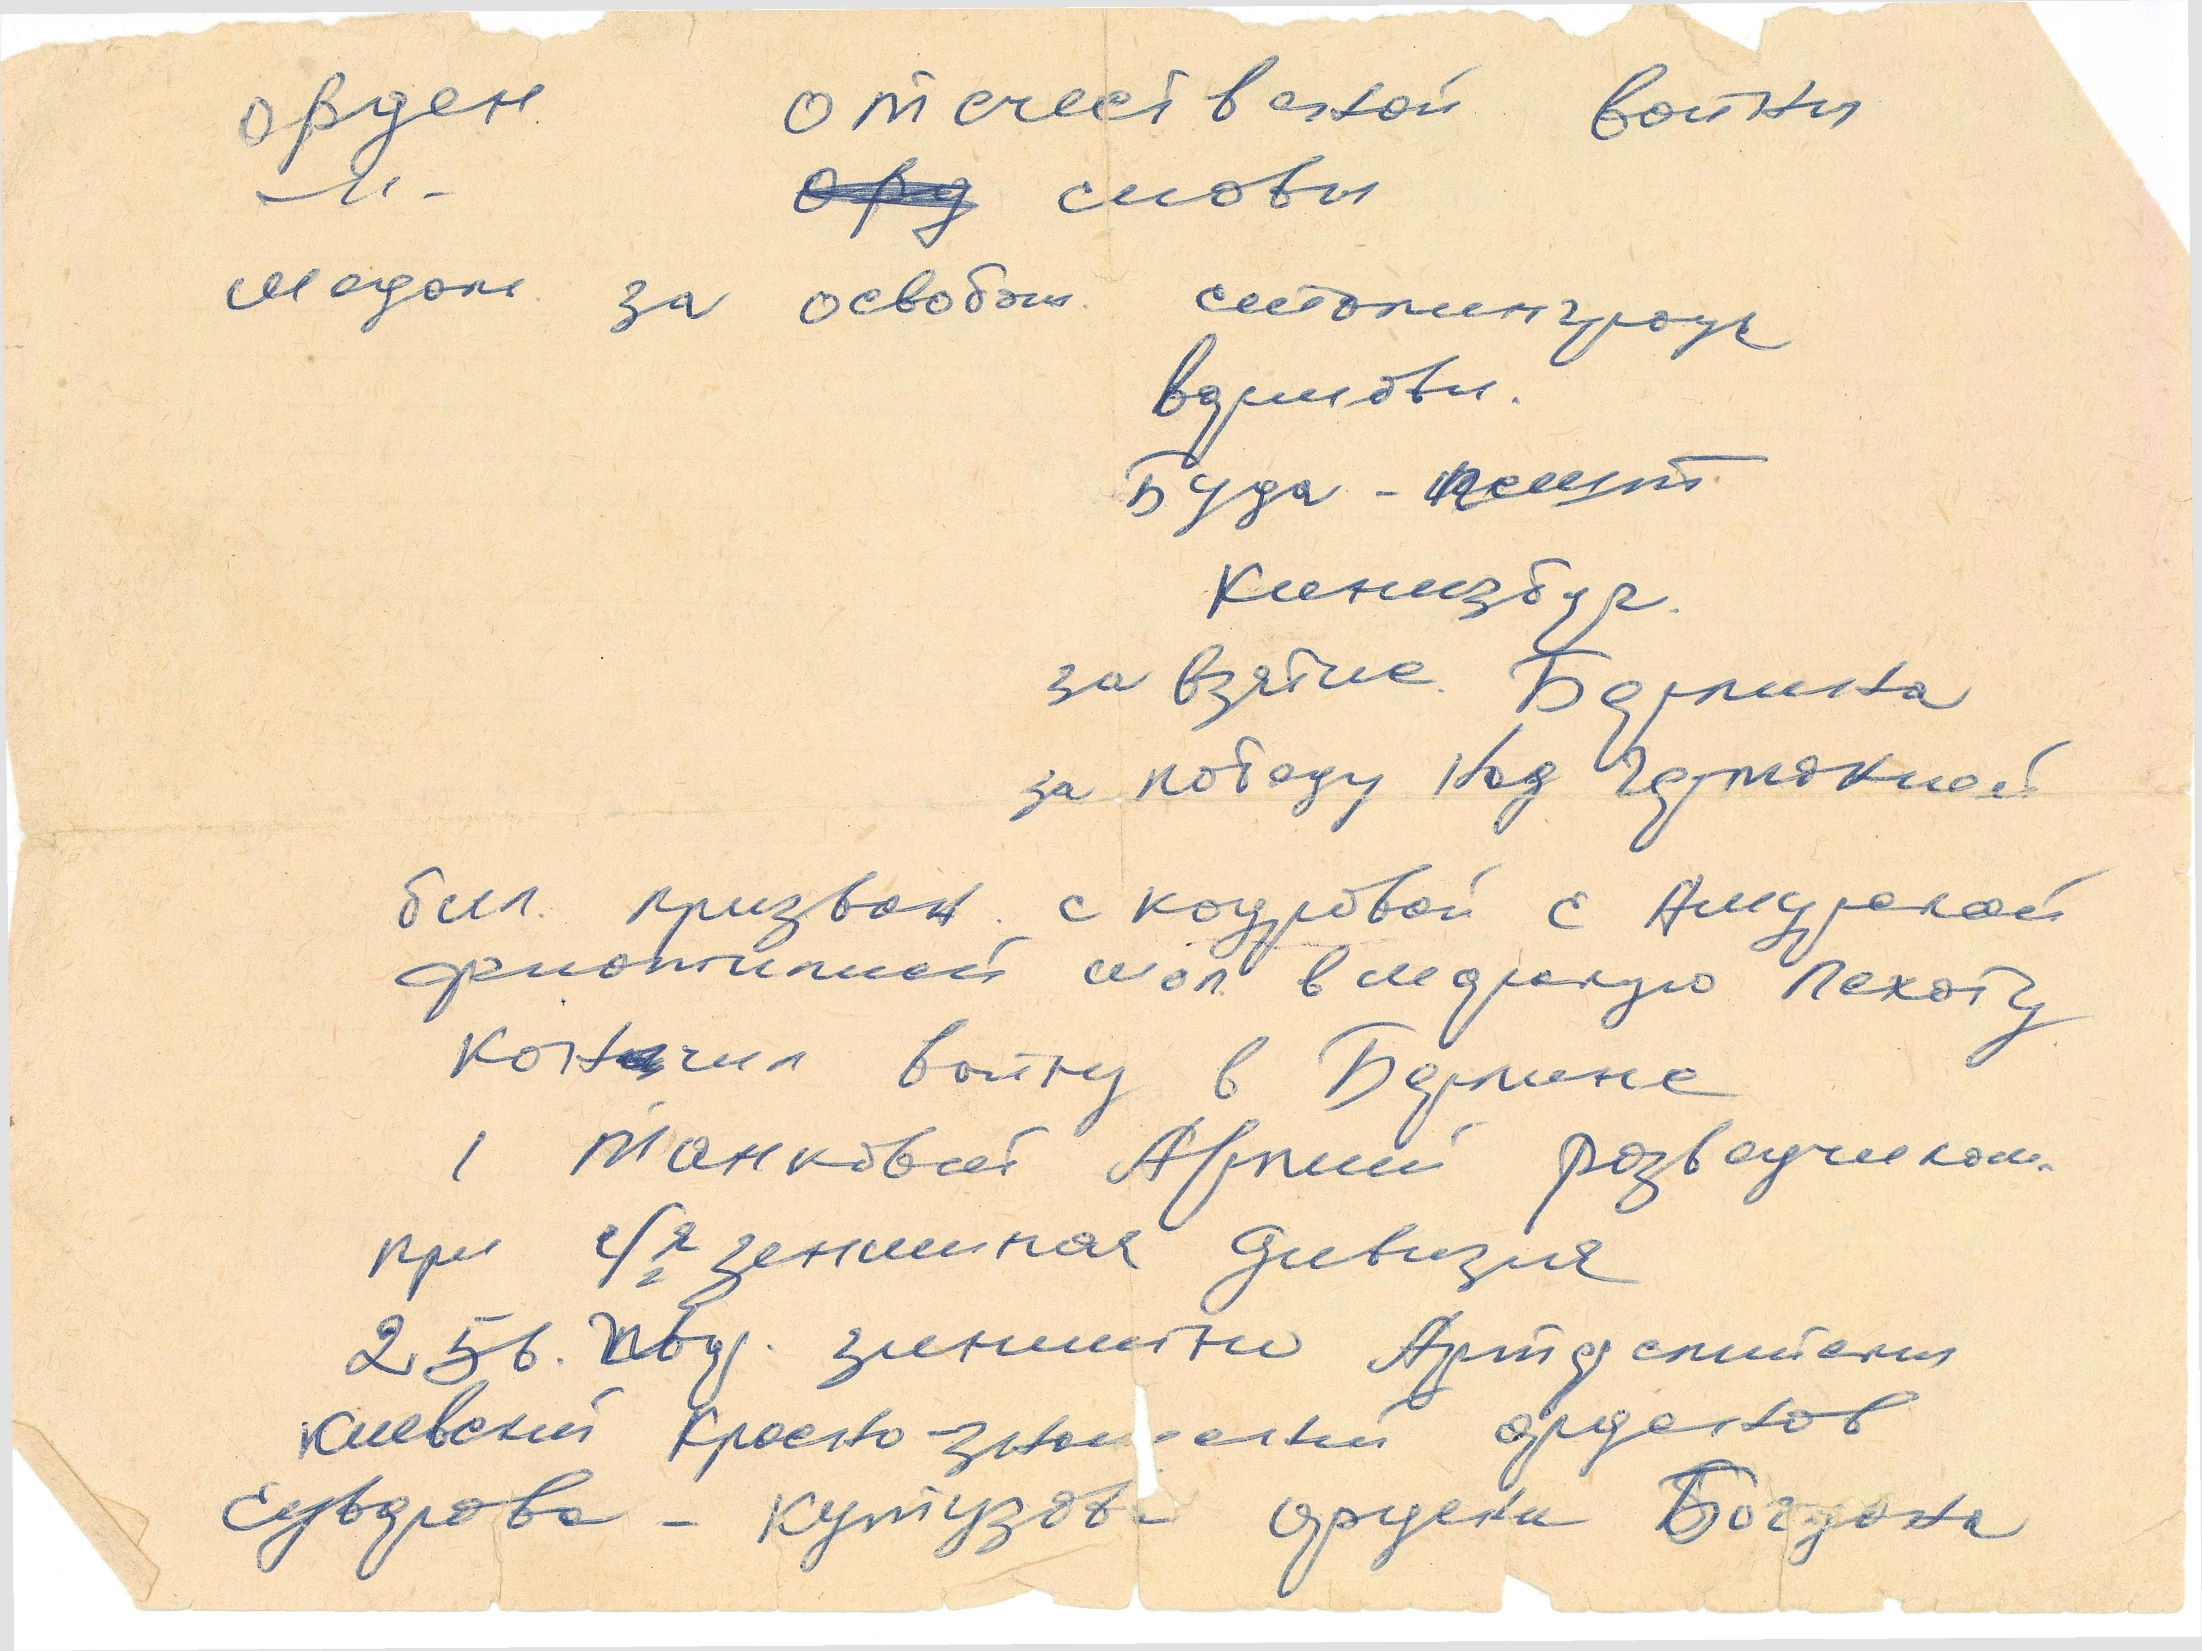 орден отечественой войны
-"- славы
медали за освобож. сталинграда
варшавы.
Буда-пешт
Кинизбург.
за взятие Берлина
за победу над германией
был призван с кадровой с Амурской
флотилией мол в морскую пехоту
кончил войну в Берлине
1 танковой Армии разведчиком
при зенитная дивизия
зенитно Артелерийскии
киевский Красно-знаменный орденов
Суворова - кутузова ордена Богдана